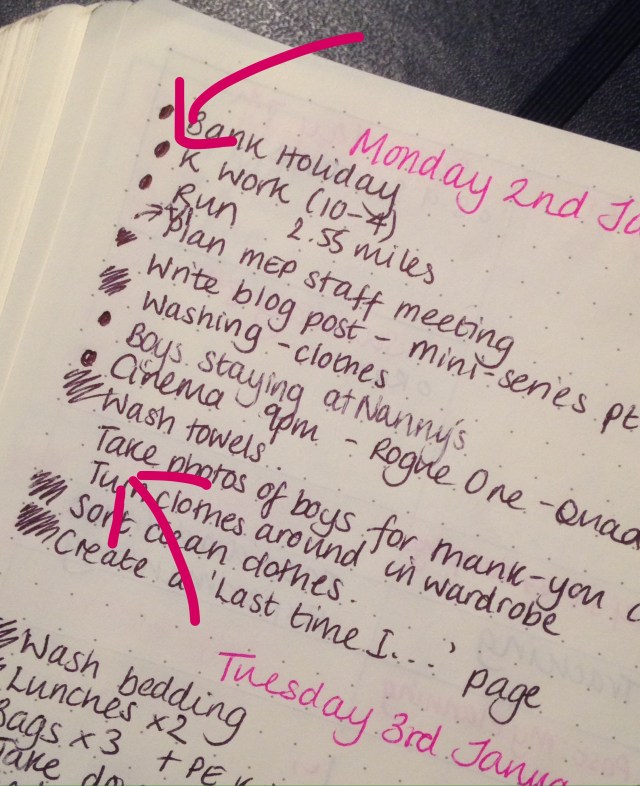 Monday 2nd Ja
Bank Holiday
K work (10-4)
Run 2.55 miles
Plan MEP staff meeting
Write blog post - mini-series pt
Washing - clothes
Boys staying at Nanny's
Cinema 9pm - Rogue One - Quad
Wash towels
Take photos of boys for thank-you c
Turn clothes around in wardrobe
Sort clean clothes.
Create a 'Last time I....' page
Tuesday 3rd Janua
Wash bedding
Lunches x2
Bags x3 + PE K
Take do